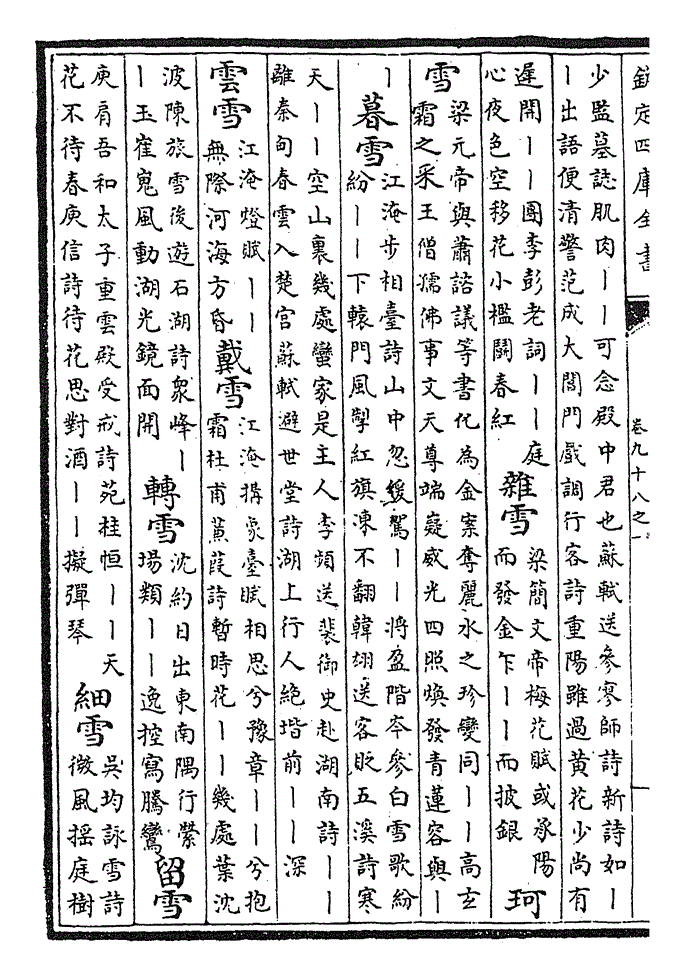 欽定四庫全書
卷九十八之一
少監墓誌肌肉丨丨可念殿中君也蘇軾送參寥師詩新詩如丨
丨出語便清警范成大閶門戲調行客詩重陽雖過黃花少尚有
遲開丨丨團李彭老詞丨丨庭
心夜色空移花小檻闘春紅
雜雪
梁簡文帝梅花賦或承陽
而發金乍丨丨而披銀
珂
雪
梁元帝與蕭諮議等書化為金案奪麗水之珍變同丨丨高玄
霜之采王僧孺佛事文天尊端嶷威光四照煥發青蓮容與丨
丨
暮雪
江淹步相臺詩山中忽緩駕丨丨將盈階岑參白雪歌紛
紛丨丨下轅門風掣紅旗凍不翻韓翃送客貶五溪詩寒
天丨丨空山裏幾處蠻家是主人李頻送裴御史赴湖南詩丨丨
離秦甸春雲入楚宮蘇軾避世堂詩湖上行人絶堦前丨丨深
雲雪
江淹燈賦丨丨
無際河海方昏
戴雪
江淹搆象臺賦相思兮豫章丨丨兮抱
霜杜甫蒹葭詩暫時花丨丨幾處葉沈
波陳旅雪後遊石湖詩衆峰丨
丨玉崔嵬風動湖光鏡面開
轉雪
沈約日出東南隅行縈
場類丨丨逸控寫騰鸞
留雪
庾肩吾和太子重雲殿受戒詩苑桂恒丨丨天
花不待春庾信詩待花思對酒丨丨擬彈琴
細雪
吳均詠雪詩
微風揺庭樹